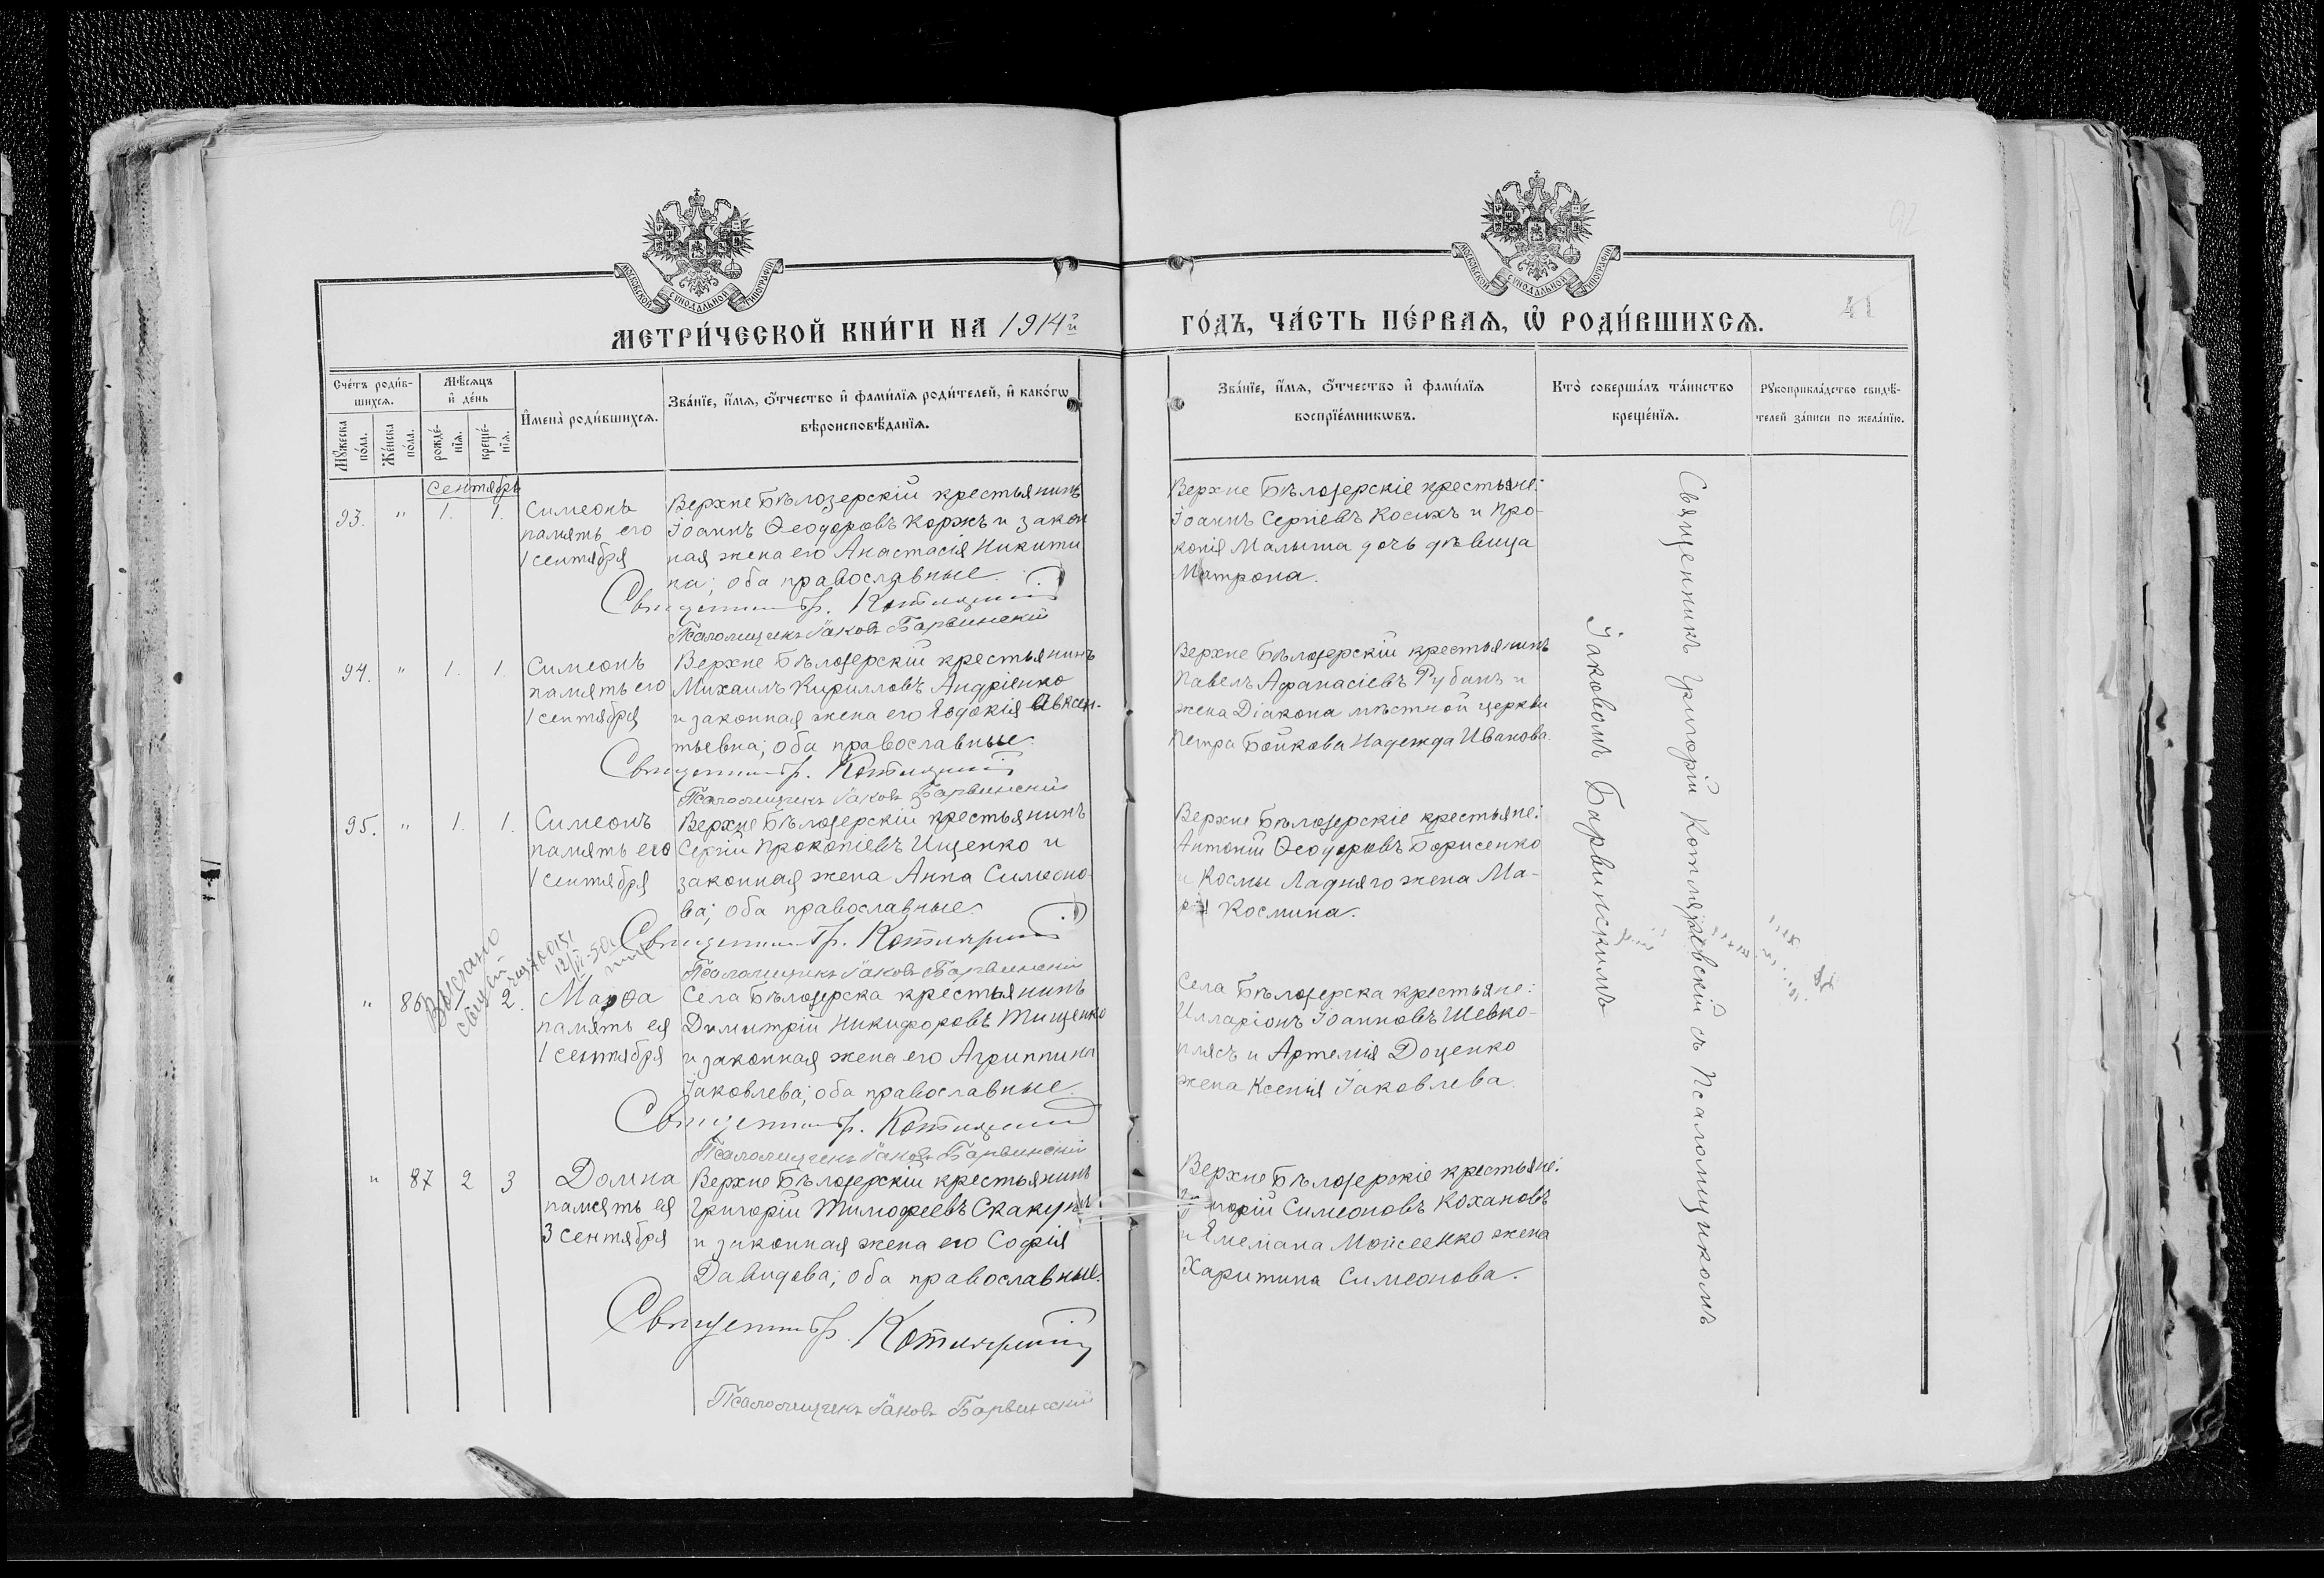 92
41
МОСКОВСКОЙ СѴНОДАЛЬНОЙ ТИПОГРАФІИ
МОСКОВСКОЙ СѴНОДАЛЬНОЙ ТИПОГРАФІИ
МЕТРИ́ЧЕСКОЙ КНИ́ГИ НА 1914й
ГО́ДЪ, ЧА́СТЬ ПЕ́РВАѦ, Ѡ҆ РОДИ́ВШИХСѦ.
Сче́тъ роди́в-
шихсѧ.
Мѣ́сѧцъ
и҆ де́нь
Мꙋ́жеска
по́ла.
Же́нска
по́ла.
рожде́-
нїѧ.
креще́-
нїѧ.
И҆мена̀ роди́вшихсѧ.
Зва́нїе, и҆́мѧ, ѻ҆́тчество и҆ фами́лїѧ роди́телей, и҆ како́гѡ
вѣроисповѣ́данїѧ.
Зва́нїе, и҆́мѧ, ѻ҆́тчество и҆ фами́лїѧ
воспрїе́мникѡвъ.
Кто̀ соверша́лъ та́инство
креще́нїѧ.
Рꙋкоприкла́дство свидѣ́-
телей за́писи по жела́нїю.
Сентябрь
93. " 1. 1.
Симеонъ
память его
1 сентября
Верхне Бѣлозерскій крестьянинъ
Іоаннъ Ѳеодоровъ Коржъ и закон
ная жена его Анастасія Никити
на; оба православные.
Священникъ Гр. Котляревскій
Псаломщикъ Іаковъ Барвинскій
Верхне Бѣлозерскіе крестьяне:
Іоаннъ Сергіевъ Косихъ и Про-
копія Малыша дочь дѣвица
Матрона.
94. " 1. 1.
Симеонъ
память его
1 сентября
Верхне Бѣлозерскій крестьянинъ
Михаилъ Кирилловъ Андріенко
и законная жена его Евдокія Авксен-
тьевна; оба православные.
Священникъ Гр. Котляревскій
Псаломщикъ Іаковъ Барвинскій
Верхне Бѣлозерскій крестьянинъ
Павелъ Афанасіевъ Рубанъ и
жена Діакона мѣстной церкви
Петра Бойкова Надежда Иванова.
95. " 1. 1.
Симеонъ
память его
1 сентября
Верхне Бѣлозерскій крестьянинъ
Сергій Прокопіевъ Ищенко и
законная жена Анна Симеоно-
ва; оба православные.
Священникъ Гр. Котляревскій
Псаломщикъ Іаковъ Барвинскій
Верхне Бѣлозерскіе крестьяне:
Антоній Ѳеодоровъ Борисенко
и Космы Ладняго жена Ма-
рія Космина.
Выслано
" 86 2.
Марѳа
память ея
1 сентября
Села Бѣлозерска крестьянинъ
Димитрій Никифоровъ Тищенко
и законная жена его Агриппина
Іаковлева; оба православные.
Священникъ Гр. Котляревскій
Псаломщикъ Іаковъ Барвинскій
Села Бѣлозерска крестьяне:
Илларіонъ Іоанновъ Шевко-
плясъ и Артемія Доценко
жена Ксенія Іаковлева.
" 87 2 3
Домна
память ея
3 сентября
Верхне Бѣлозерскій крестьянинъ
Григорій Тимофеевъ Скакунъ
и законная жена его Софія
Давидова; оба православные.
Священникъ Гр. Котляревскій
Псаломщикъ Іаковъ Барвинскій
Верхне Бѣлозерскіе крестьяне:
Григорій Симеоновъ Кохановъ
и Емеліана Мойсеенко жена
Харитина Симеонова.
Священникъ Григорій Котляревскій съ Псаломщикомъ
Іаковомъ Барвинскимъ